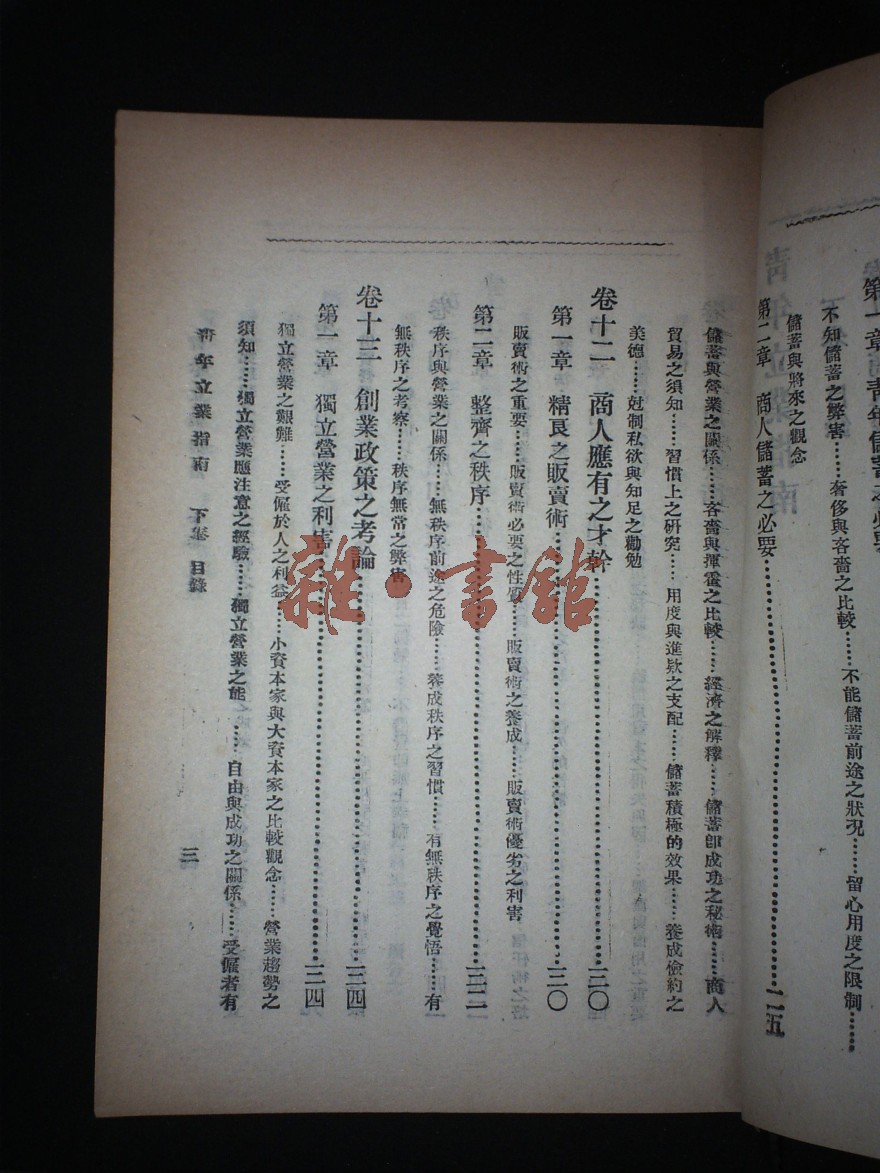 不知儲蓄之弊害……奢侈與吝嗇之比較……不能儲蓄前途之狀況……留心用度之限制……
儲蓄與將來之觀念
第二章 商人儲蓄之必要……二五
儲蓄與營業之關係……吝嗇與揮霍之比較……經濟之解釋……儲蓄卽成功之秘術……商人
貿易之須知……習慣上之研究……用度與進欵之支配……儲蓄積極的效果……養成儉約之
美德……尅制私欲與知足之勸勉
卷十二 商人應有之才幹……三〇
第一章 精良之販賣術……三〇
販賣術之重要……販賣術必要之性質……販賣術之養成……販賣術優劣之利害
第二章 整齊之秩序……三二
秩序與營業之關係……無秩序前途之危險……養成秩序之習慣……有無秩序之覺悟……有
無秩序之考察……秩序無常之弊害
卷十三 創業政策之考論……三四
第一章 獨立營業之利害……三四
獨立營業之艱難……受僱於人之利益……小資本家與大資本家之比較觀念……營業趨勢之
須知……獨立營業應注意之經驗……獨立營業之能……自由與成功之關係……受僱者有
靑年立業指南 下卷 目錄 三
雜·書館